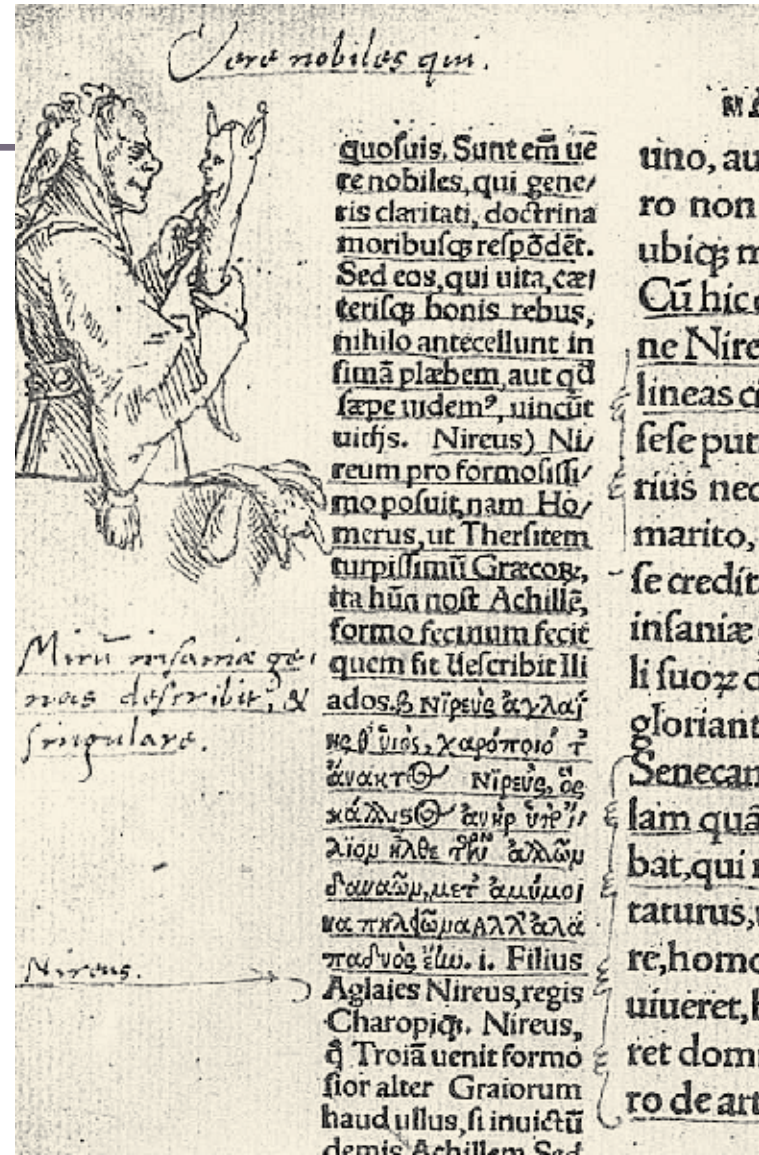 Vere nobiles qui.
quoſuis. Sunt em̄ ue
re nobiles, qui gene/
ris claritati, doctrina
moribuſq; reſpōdēt.
Sed eos, qui uita, cæ/
teriſq; bonis rebus,
nihilo antecellunt in
fimā plæbem, aut qđ
ſæpe uidemꝰ, uincūt
uitijs. Nireus) Ni/
reum pro formoſiſſi/
mo poſuit, nam Ho/
merus, ut Therſitem
turpiſſimū Græcoꝝ,
ita hūc poſt Achillē,
formo
quem ſic deſcribit Ili
ados. β Νῑρεὺς ἀγλαΐ
ης θ' ὑιὸς, χαρόποιό τ
ἄνακτος Νῑρεὺς, ὃς
κάλλιστος ἀνὴρ ὑπ' ἴ/
λιομ ἦλθε τῶν ἄλλωμ
δαναῶμ, μετ ἀμύμο
να πηλείωμα Αλλ' ἀλα
παδνὸς ἔην. i. Filius
Aglaies Nireus, regis
Charopiq;. Nireus,
q̄ Troiā uenit formo
ſior alter Graiorum
haud ullus, ſi inuictū
demis Achillem Sed
Mirū inſaniæ ge/
nus deſcribit, &
ſingulare.
Nireus.
uno, au
ro non
ubiq; m
Cū hic
ne Nire
lineas ci
ſeſe put
rius nec
marito,
ſe credit
inſaniæ
li ſuoꝝ
gloriant
Senecan
lam quā
bat, qui
taturus,
re, homo
uiueret,
ret dom
ro de art